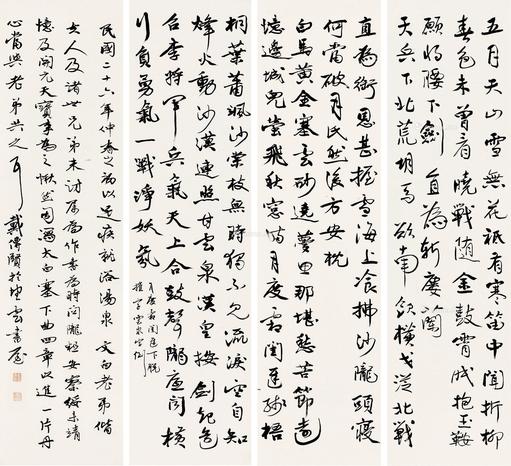 五月天山雪無花祇有寒笛中聞折柳
春色未曾看曉戰随金鼓霄眠抱玉鞍
願将腰下劍直為斬樓蘭
天兵下北荒胡馬欲南飲橫戈從百戰
直為銜恩甚握雪海上飡拂沙隴頭寢
何當破月氏然後方安枕
白馬黃金塞雲砂遶夢思那堪愁苦節遠
憶邊城兒螢飛秋窓滿月度霜閨遲殘梧
桐葉蕭颯沙棠枝無時獨不見流淚空自知
烽火動沙漠連照甘雲泉漢皇按劍起還
召李將軍兵氣天上合鼓聲隴底聞橫
行負勇氣一戰淨妖氛
月度霜閨遲下脫
摧字雲泉字倒
民國二十六年仲春之初以足疾就浴湯泉 文白老弟偕
夫人及諸世兄弟来討屬為作書為時聞隴察綏未靖
憶及開元天寶事為之愀然因寫太白塞下曲四章以進一片丹
心當與老弟共之耳 戴傳賢於望雲書屋